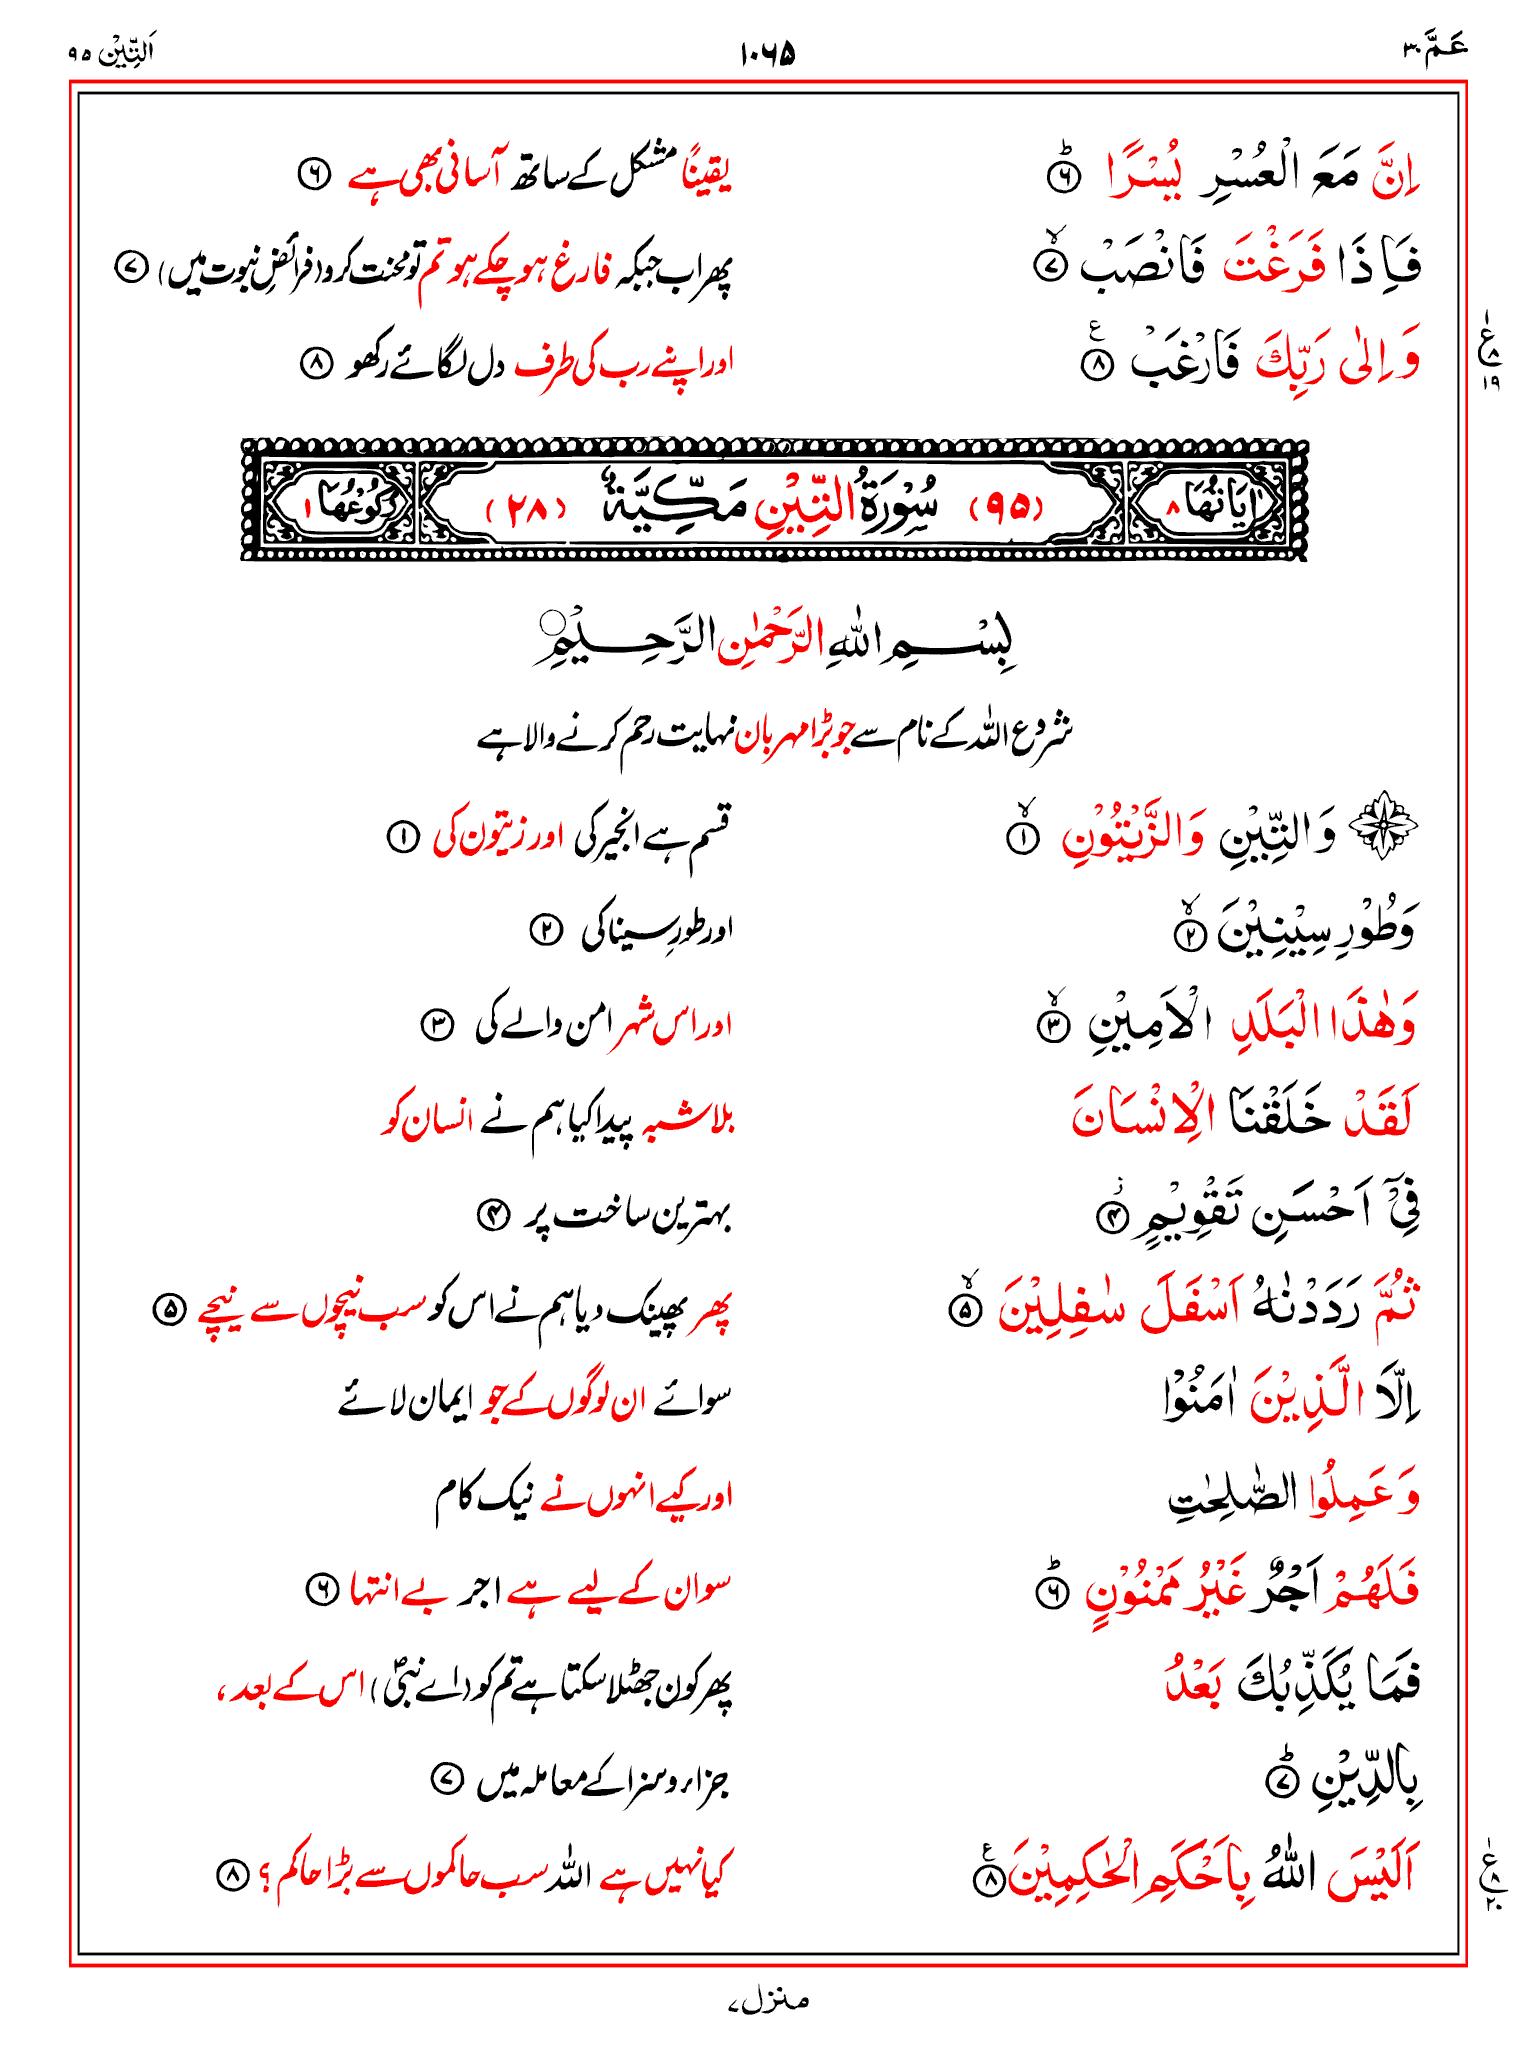 عَمَّ ۳۰ ۱۰۶۵ اَلتِّيْن ۹۵
اِنَّ مَعَ الْعُسْرِ يُسْرًا ؕ ۶ یقیناً مشکل کے ساتھ آسانی بھی ہے ۶
فَاِذَا فَرَغْتَ فَانْصَبْ ۙ ۷ پھر اب جبکہ فارغ ہو چکے ہو تم تو محنت کرو (فرائضِ نبوت میں) ۷
وَ اِلٰى رَبِّكَ فَارْغَبْ ۸ ع اور اپنے رب کی طرف دل لگائے رکھو ۸
ع ۸ ۱۹
اٰيَاتُهَا ۸ (۹۵) سُوْرَةُ التِّيْنِ مَكِّيَّةٌ (۲۸) رُكُوْعُهَا ۱
بِسْمِ اللّٰهِ الرَّحْمٰنِ الرَّحِيْمِ
شروع اللہ کے نام سے جو بڑا مہربان نہایت رحم کرنے والا ہے
وَ التِّيْنِ وَ الزَّيْتُوْنِ ۙ ۱ قسم ہے انجیر کی اور زیتون کی ۱
وَ طُوْرِ سِيْنِيْنَ ۙ ۲ اور طورِ سینا کی ۲
وَ هٰذَا الْبَلَدِ الْاَمِيْنِ ۙ ۳ اور اس شہر امن والے کی ۳
لَقَدْ خَلَقْنَا الْاِنْسَانَ بلاشبہ پیدا کیا ہم نے انسان کو
فِيْۤ اَحْسَنِ تَقْوِيْمٍ ز ۴ بہترین ساخت پر ۴
ثُمَّ رَدَدْنٰهُ اَسْفَلَ سٰفِلِيْنَ ۙ ۵ پھر پھینک دیا ہم نے اس کو سب نیچوں سے نیچے ۵
اِلَّا الَّذِيْنَ اٰمَنُوْا سوائے ان لوگوں کے جو ایمان لائے
وَ عَمِلُوا الصّٰلِحٰتِ اور کیے انہوں نے نیک کام
فَلَهُمْ اَجْرٌ غَيْرُ مَمْنُوْنٍ ؕ ۶ سو ان کے لیے ہے اجر بے انتہا ۶
فَمَا يُكَذِّبُكَ بَعْدُ پھر کون جھٹلا سکتا ہے تم کو (اے نبیؐ) اس کے بعد،
بِالدِّيْنِ ؕ ۷ جزاء و سزا کے معاملہ میں ۷
اَلَيْسَ اللّٰهُ بِاَحْكَمِ الْحٰكِمِيْنَ ۸ ع کیا نہیں ہے اللہ سب حاکموں سے بڑا حاکم؟ ۸
ع ۸ ۲۰
منزل ۷